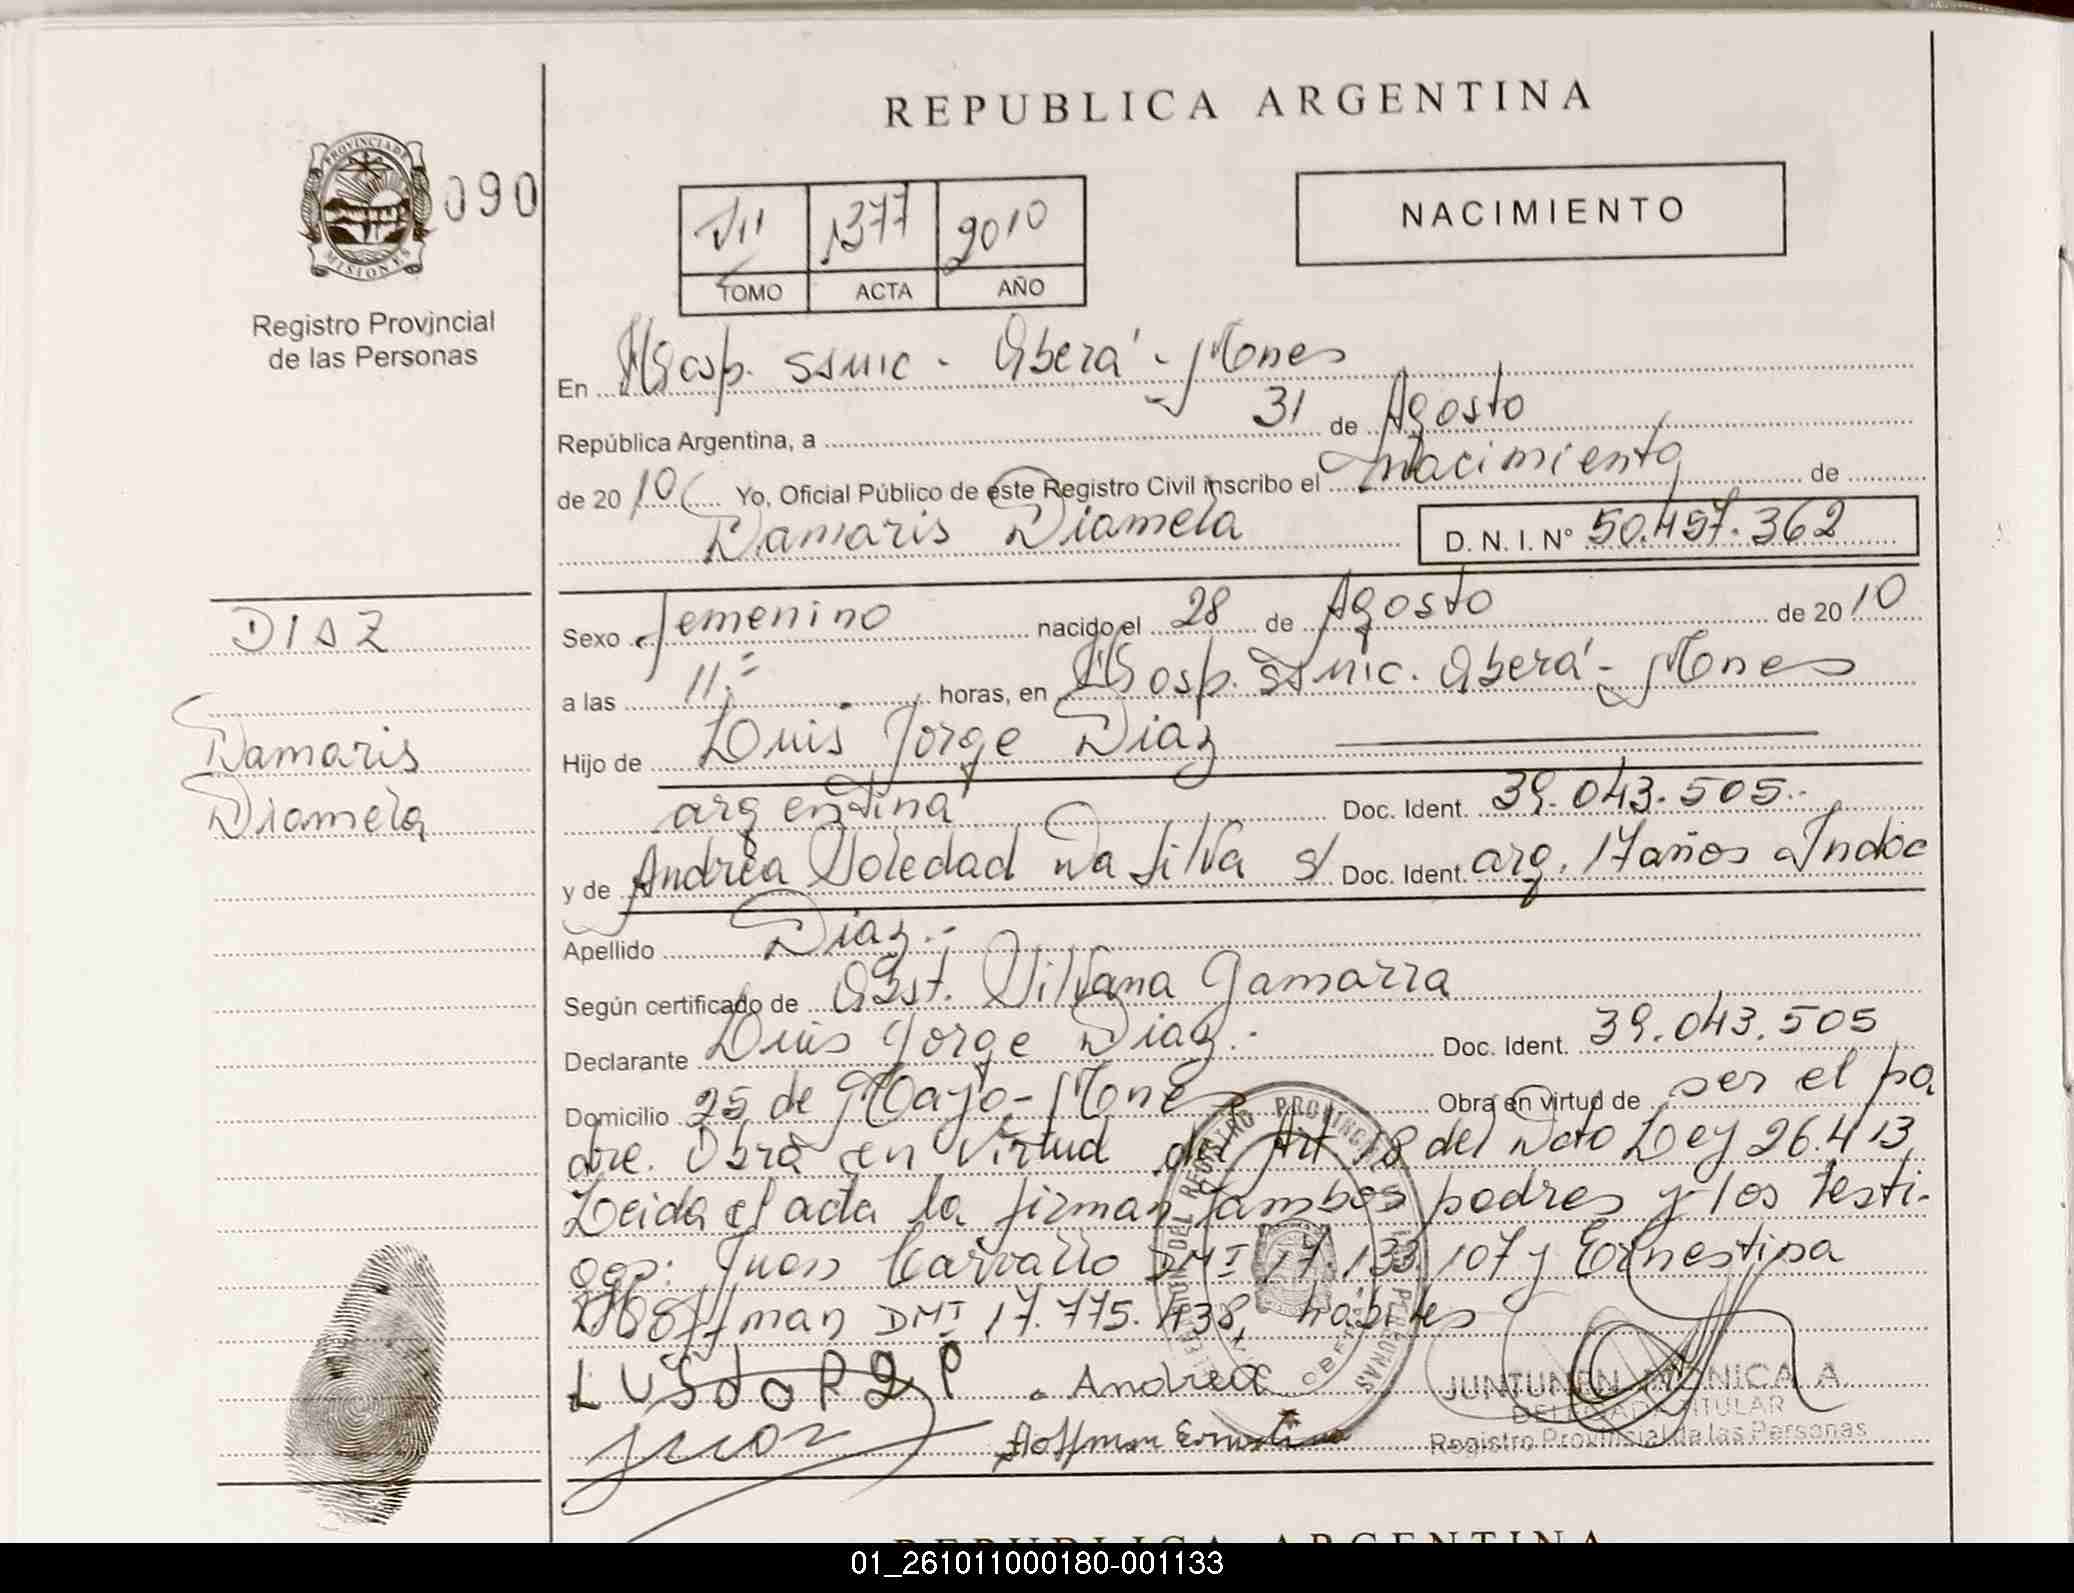 REPUBLICA ARGENTINA
PROVINCIA DE MISIONES
090
NACIMIENTO
VII 1377 2010
TOMO ACTA AÑO
Registro Provincial
de las Personas
En Hosp. SAMIC - Oberá - Mones
República Argentina, a 31 de Agosto
de 2010 Yo, Oficial Público de este Registro Civil inscribo el nacimiento de
Damaris Diamela D. N. I. Nº 50.457.362
DIAZ
Damaris
Diamela
Sexo femenino nacido el 28 de Agosto de 2010
a las 11.= horas, en Hosp. SAMIC. Oberá - Mones
Hijo de Luis Jorge Diaz
argentina Doc. Ident. 39.043.505.-
y de Andrea Soledad Da Silva s/ Doc. Ident. arg. 17 años Indoc
Apellido Diaz.-
Según certificado de Obst. Silvana Gamarra
Declarante Luis Jorge Diaz.- Doc. Ident. 39.043.505
Domicilio 25 de Mayo - Mones Obra en virtud de ser el pa
dre. Obra en virtud del Art 18 del Dcto Ley 26.413
Leida el acta la firman ambos padres y los testi-
gos: Juan Carvallo DNI 17.133.107 y Ernestina
Hoffman DNI 17.775.438, hábiles
LUIS JORGE . Andrea
Juan Hoffman Ernestina
JUNTUNEN MONICA A.
DELEGADA TITULAR
Registro Provincial de las Personas
REPUBLICA ARGENTINA
01_261011000180-001133